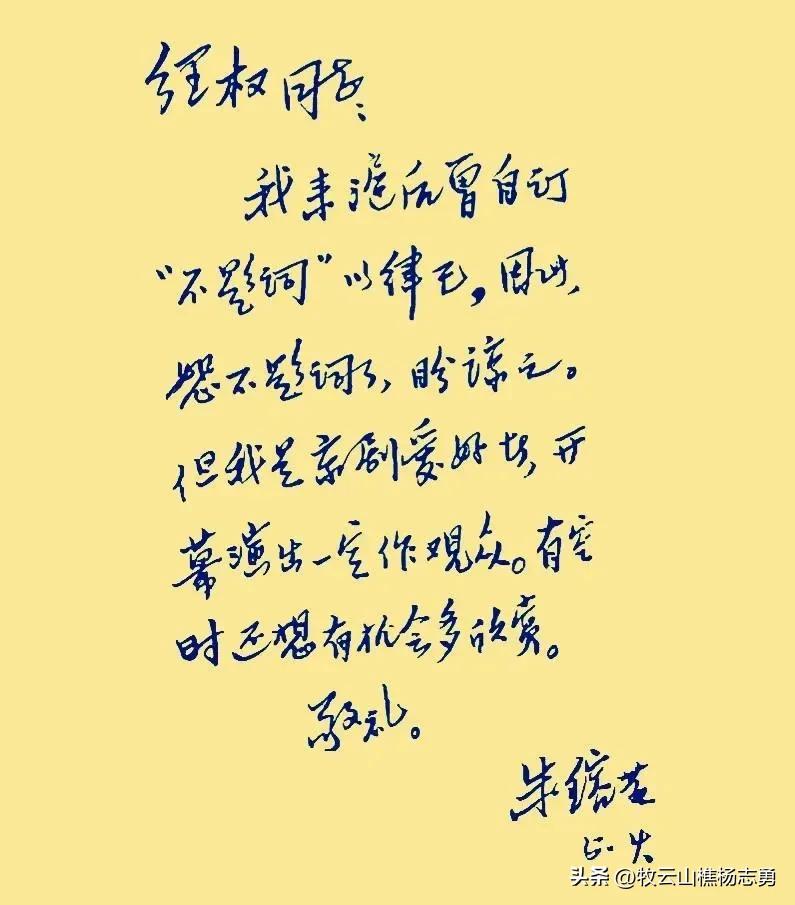 经权同志：
我来沪后曾自订
“不题词”以律己，因此，
恕不题词了，盼谅之。
但我是京剧爱好者，开
幕演出一定作观众。有空
时还想有机会多欣赏。
敬礼。
朱镕基
头条 @牧云山樵杨志勇